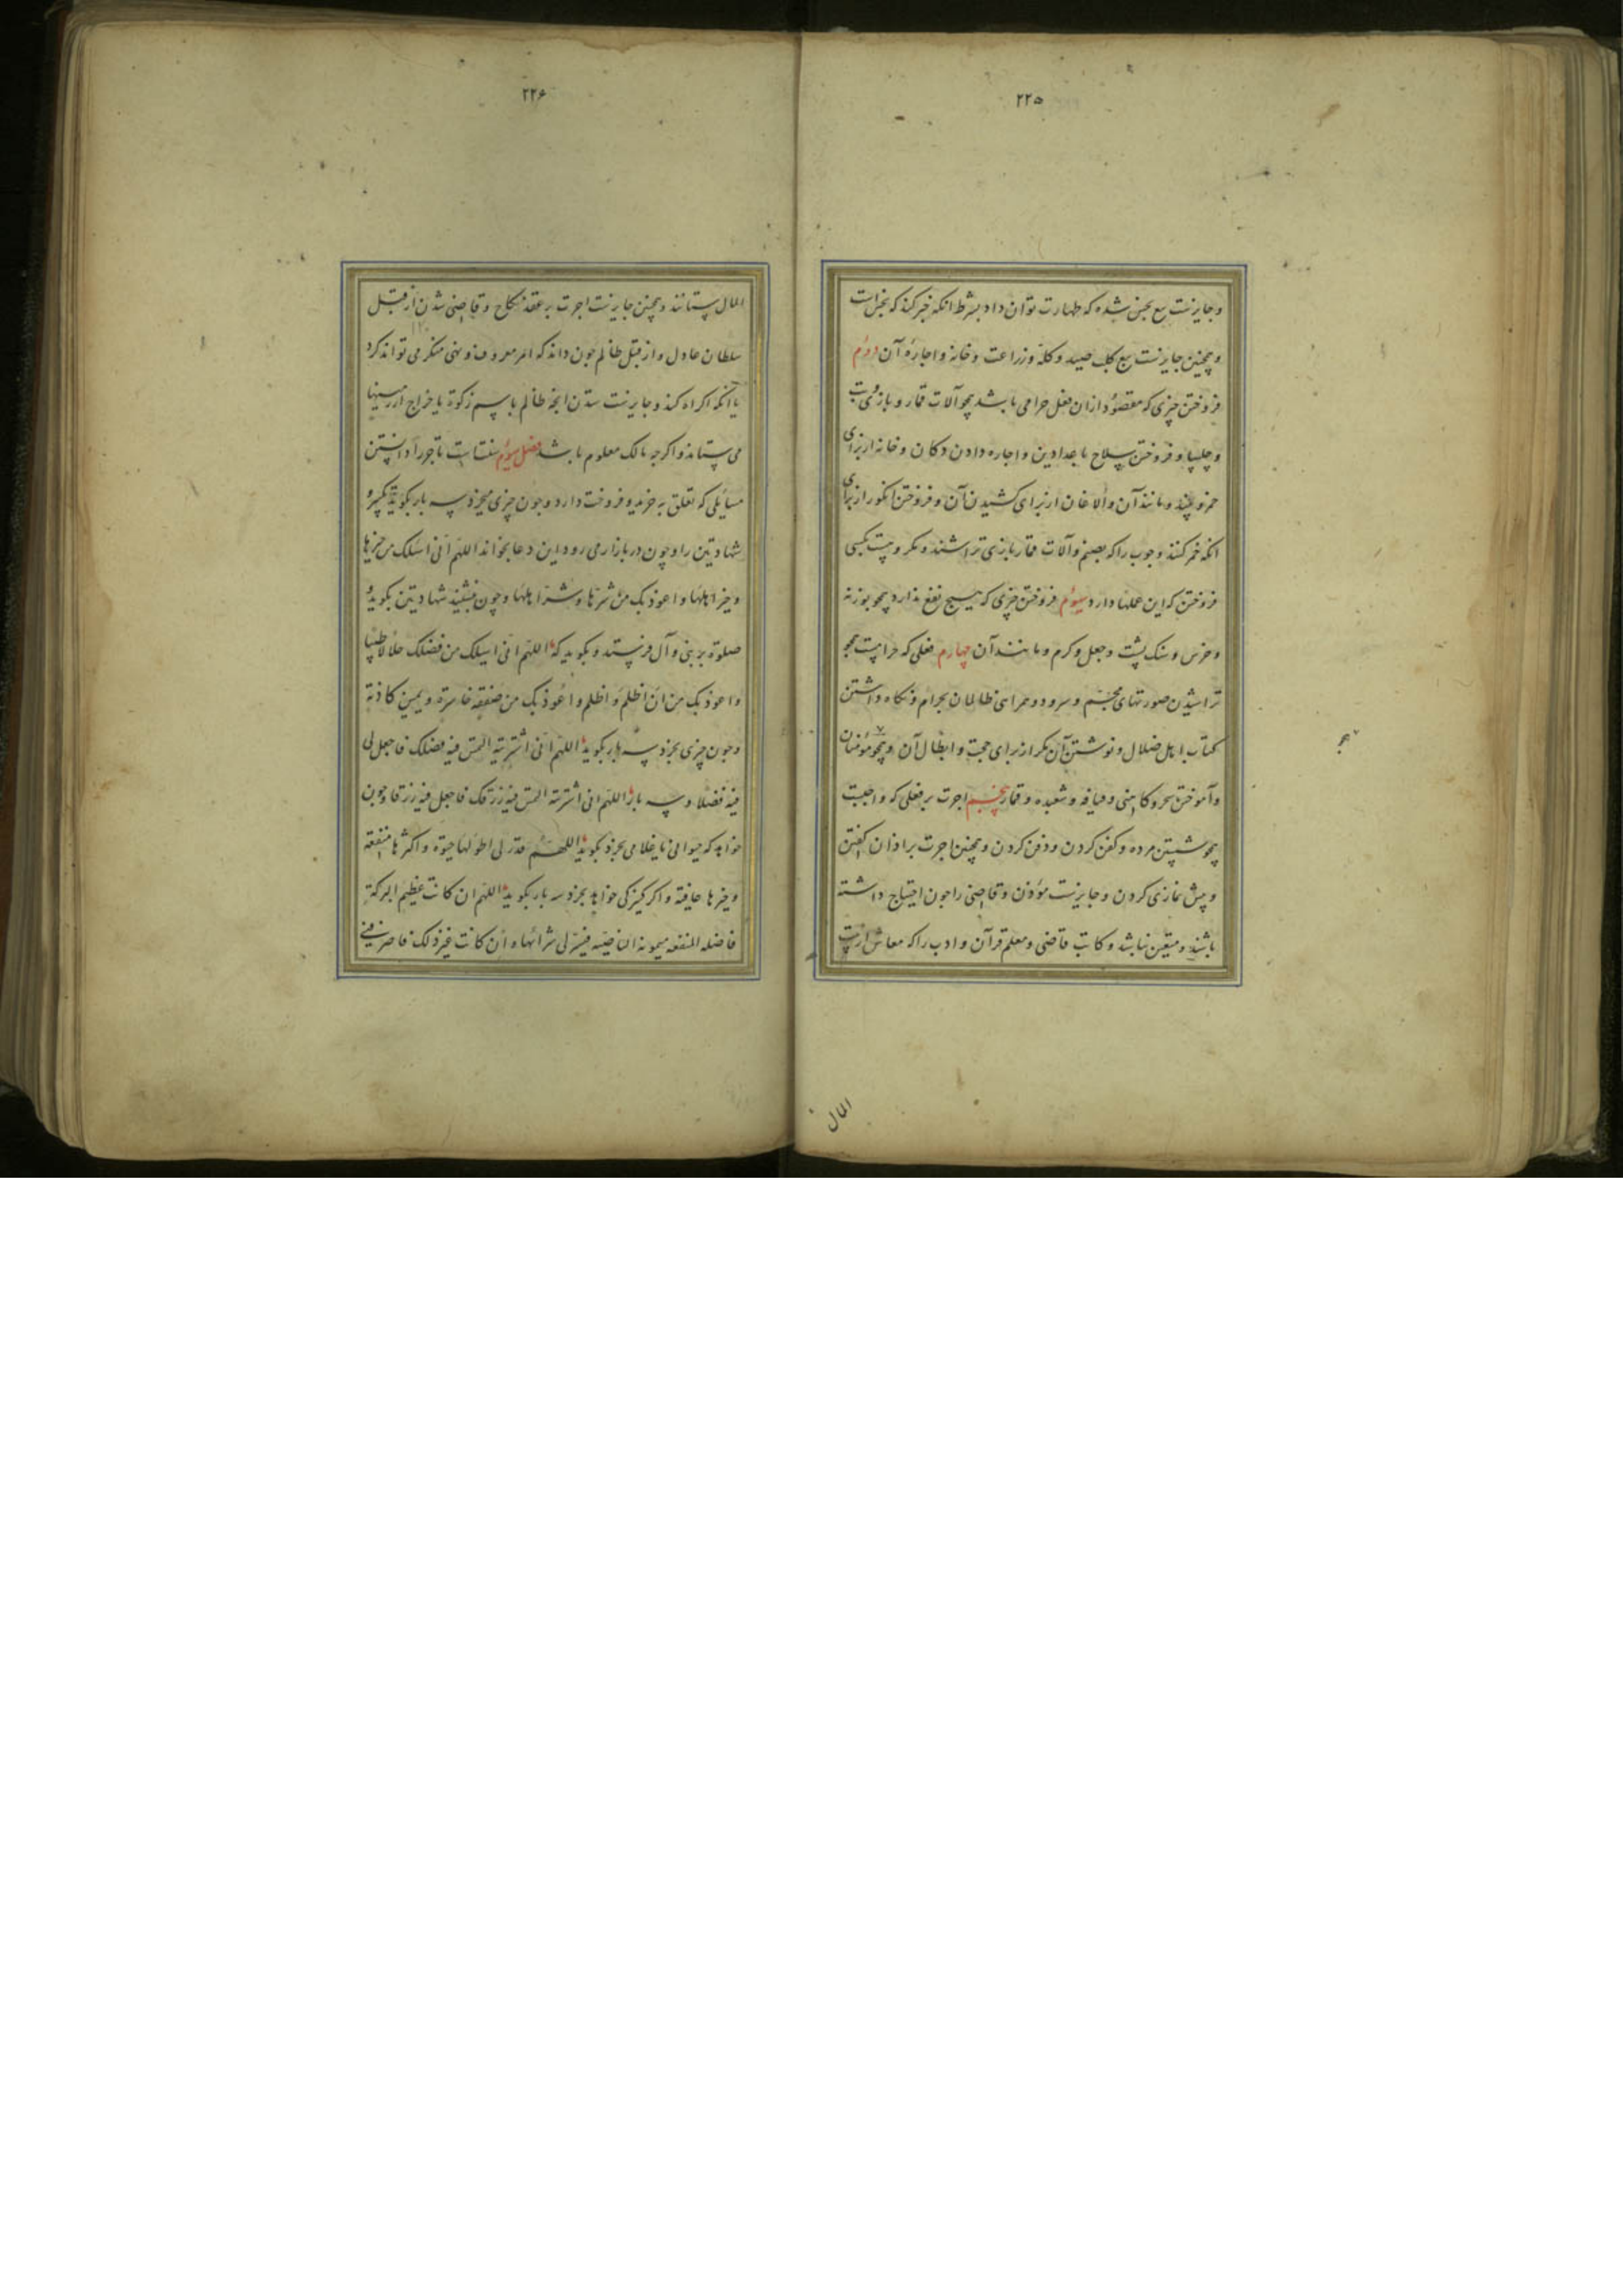 ۲۲۵
و جایزست بیع نجس شده که طهارت توان داد بشرط انکه خبر کند که نجس است
و همچنین جایزست بیع کلب صید و کله و زراعت و خانه و اجارهٔ آن دوم
فروختن چیزی که مقصود ازان فعل حرامی باشد همچو آلات قمار و بازی و بت
و چلیپا و فروختن سلاح باعدا دین و اجاره دادن دکان و خانه از برای
خمر و مانند آن و الاغان از برای کشیدن آن و فروختن انکور از برای
انکه خمر کنند و چوب را که بصنم و آلات قمار بازی تراشند و مکروهست بکسی
فروختن که این عملها دارد سیوم فروختن چیزی که هیچ نفع ندارد همچو بوزنه
و خرس و سنک پشت و جعل و کرم و مانند آن چهارم فعلی که حرامست همچو
تراشیدن صورتهای مجسم و سرود و همراهی ظالمان بحرام و نکاه داشتن
کتاب اهل ضلال و نوشتن آن مکر از برای حجت و ابطال آن و هجو مؤمنان
و آموختن سحر و کاهنی و قیافه و شعبده و قمار پنجم اجرت بر فعلی که واجبست
همچو شستن مرده و کفن کردن و دفن کردن و همچنین اجرت بر اذان کفتن
و پیش نمازی کردن و جایزست مؤذن و قاضی را چون احتیاج داشته
باشند و متعین نباشد و کاتب قاضی و معلم قرآن و ادب را که معاش از بیت
المال
۲۲۶
المال ستانند و همچنین جایزست اجرت بر عقد نکاح و قاضی شدن از قبل
سلطان عادل و از قبل ظالم چون داند که امر معروف و نهی منکر می تواند کرد
یا آنکه اکراه کند و جایزست ستدن انچه ظالم باسم زکوة یا خراج از زمینها
می ستاند و اکر چه مالک معلوم باشد فصل سیوم سنتست تاجر را دانستن
مسایلی که تعلق به خرید و فروخت دارد و چون چیزی میخرد سه بار بکوید تکبیر و
شهادتین را و چون در بازار می رود این دعا بخواند اللهم انی اسئلک من خیرها
و خیر اهلها و اعوذ بک من شرها و شر اهلها و چون بنشیند شهادتین بکوید و
صلوة بر نبی و آل فرستد و بکوید که اللهم انی اسئلک من فضلک حلالا طیبا
و اعوذ بک من ان اظلم و اظلم و اعوذ بک من صفقة خاسرة و یمین کاذبة
و چون چیزی بخرد سه بار بکوید اللهم انی اشتریته التمس فیه فضلک فاجعل لی
فیه فضلا و سه بار اللهم انی اشتریته التمس فیه رزقک فاجعل فیه رزقا و چون
خواهد که حیوانی یا غلامی بخرد بکوید اللهم قدر لی اطولها حیوة و اکثرها منفعة
و خیرها عاقبة و اکر کنیزکی خواهد بخرد سه بار بکوید اللهم ان کانت عظیم البرکة
فاضله المنفعه میمونة الناصیه فیسر لی شرائها و ان کانت غیر ذلک فاصرفنی